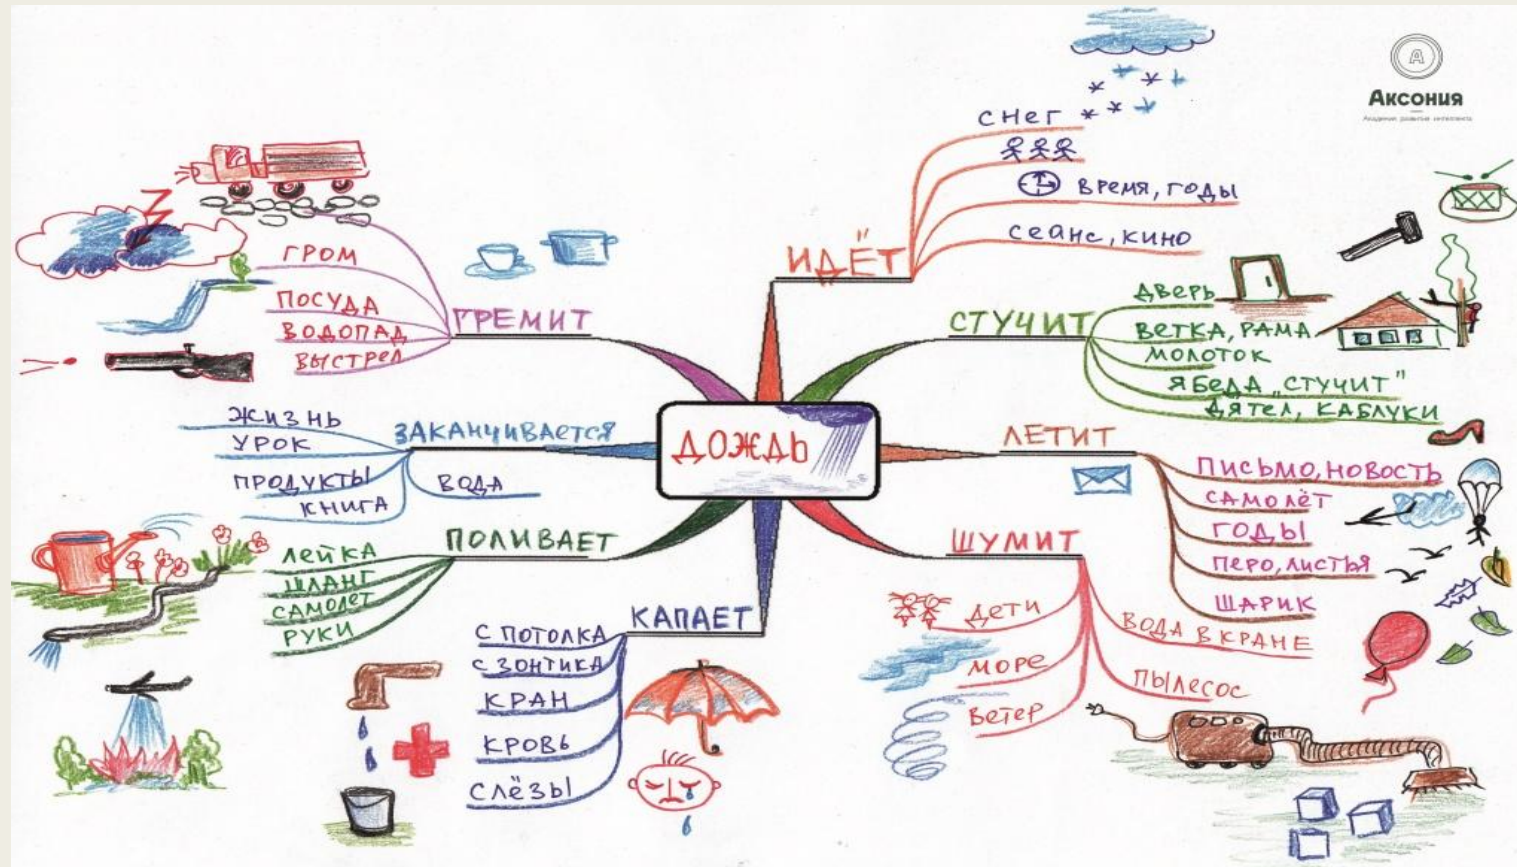 Аксония
Академия развития интеллекта
ДОЖДЬ
ИДЁТ
снег
время, годы
сеанс, кино
СТУЧИТ
дверь
ветка, рама
молоток
ябеда „стучит"
дятел, каблуки
ЛЕТИТ
письмо, новость
самолёт
годы
перо, листья
шарик
ШУМИТ
дети
море
ветер
вода в кране
пылесос
КАПАЕТ
с потолка
с зонтика
кран
кровь
слёзы
ПОЛИВАЕТ
лейка
шланг
самолет
руки
ЗАКАНЧИВАЕТСЯ
жизнь
урок
продукты
книга
вода
ГРЕМИТ
гром
посуда
водопад
выстрел